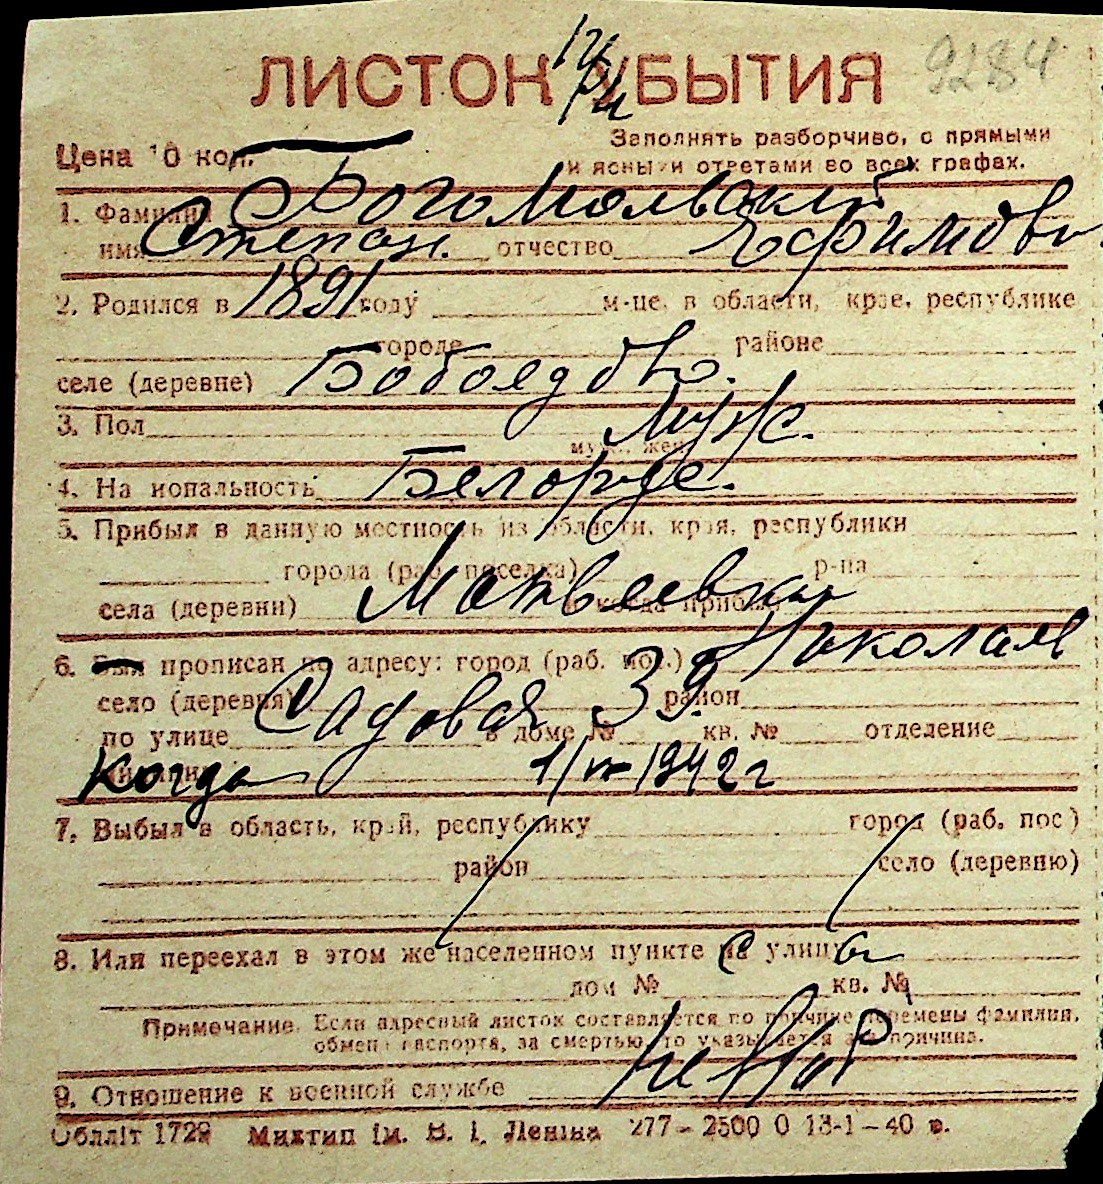 9284
ЛИСТОК УБЫТИЯ
Заполнять разборчиво, с прямыми
Цена 10 коп.
и ясными ответами во всех графах.
1. Фамилия Богомольский
имя Степан. отчество Ефимов
2. Родился в 1891 году м-це, в области, крае, республике
городе районе
селе (деревне) Бобоедово.
3. Пол Муж.
муж., жен.
4. Национальность Белорус.
5. Прибыл в данную местность из области, края, республики
города (раб. поселка) р-на
села (деревни) Матвеевки и когда прибыл
6. Был прописан по адресу: город (раб. пос.) Николаев
село (деревня) район
по улице Садовая в доме № 39. кв. № отделение
когда 1/VI 1942 г
7. Выбыл в область, край, республику город (раб. пос)
район село (деревню)
8. Или переехал в этом же населенном пункте на улицу
дом № кв. №
Примечание. Если адресный листок составляется по причине перемены фамилии,
обмена паспорта, за смертью, то указывается эта причина.
9. Отношение к военной службе
Обліт 1729 Миктип ім. В. І. Леніна 277 – 2500 0 13-1 – 40 в.